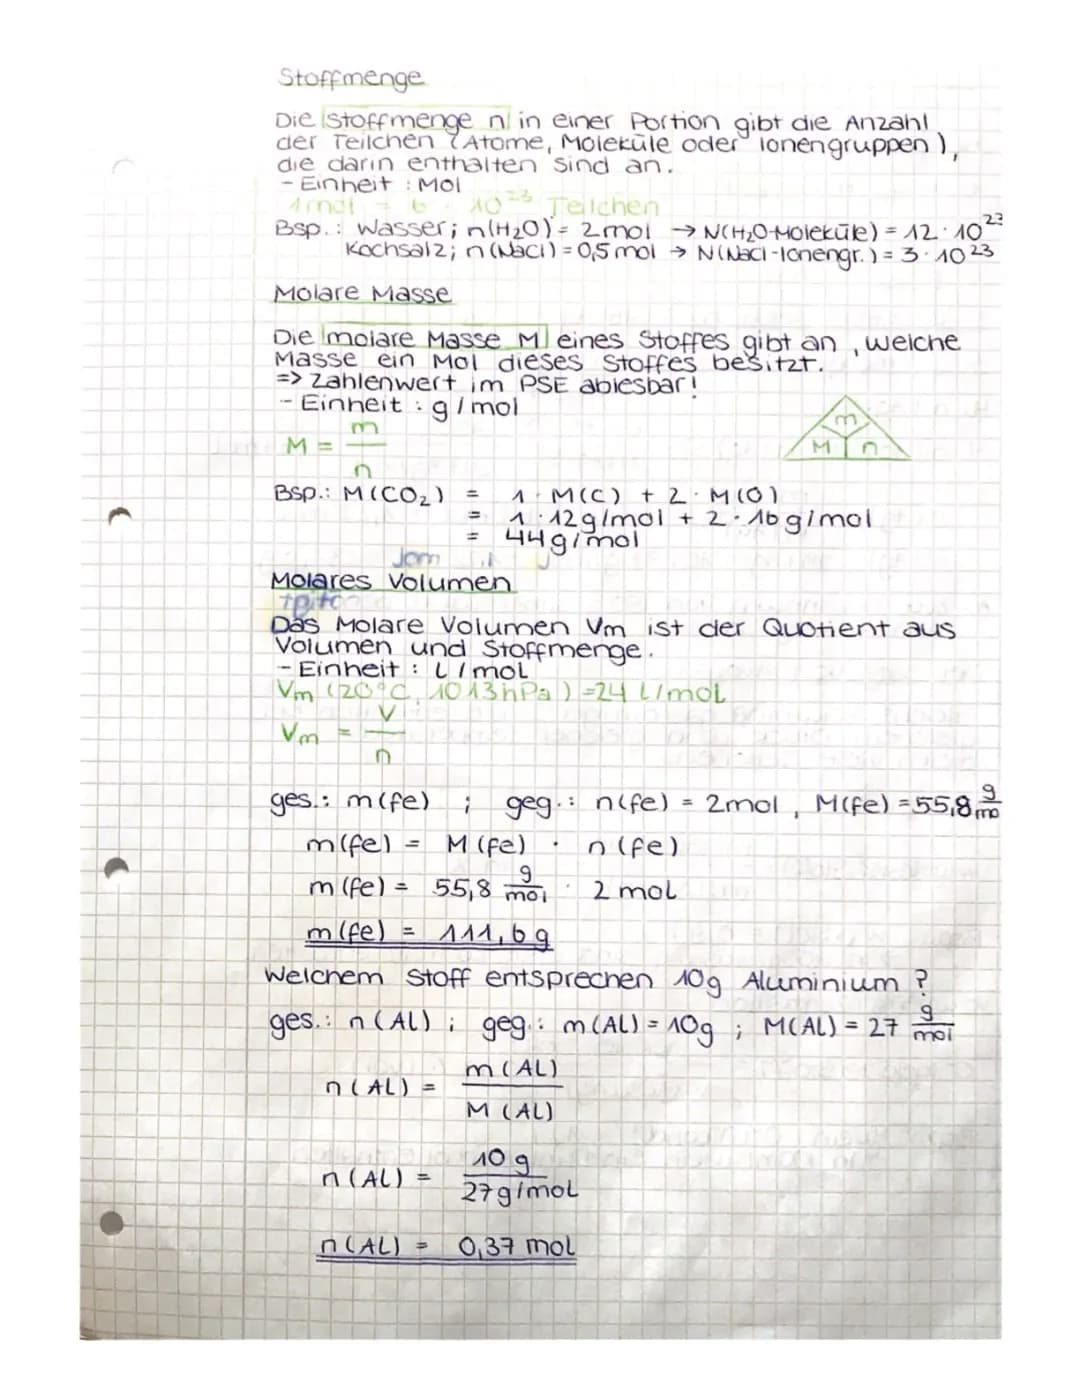 Stoffmenge
Die Stoffmenge n in einer Portion gibt die Anzahl
der Teilchen (Atome, Moleküle oder Ionengruppen),
die darin enthalten sind an.
- Einheit : Mol
1mol = 6 · 10²³ Teilchen
Bsp.: Wasser; n(H₂O) = 2mol → N(H₂O-Moleküle) = 12 · 10²³
Kochsalz; n(NaCl) = 0,5mol → N(NaCl-Ionengr.) = 3 · 10²³
Molare Masse
Die molare Masse M eines Stoffes gibt an, welche
Masse ein Mol dieses Stoffes besitzt.
=> Zahlenwert im PSE ablesbar!
- Einheit : g/mol
M = m/n
m
M n
Bsp.: M(CO₂) = 1 · M(C) + 2 · M(O)
= 1 · 12g/mol + 2 · 16g/mol
= 44g/mol
Molares Volumen
Das Molare Volumen Vm ist der Quotient aus
Volumen und Stoffmenge.
- Einheit : L/mol
Vm (20°C, 1013hPa) = 24 L/mol
Vm = V/n
ges.: m(fe) ; geg.: n(fe) = 2mol, M(fe) = 55,8 g/mo
m(fe) = M(fe) · n(fe)
m(fe) = 55,8 g/mol · 2 mol
m(fe) = 111,6g
Welchem Stoff entsprechen 10g Aluminium?
ges.: n(AL); geg.: m(AL) = 10g ; M(AL) = 27 g/mol
n(AL) = m(AL)/M(AL)
n(AL) = 10g/27g/mol
n(AL) = 0,37 mol